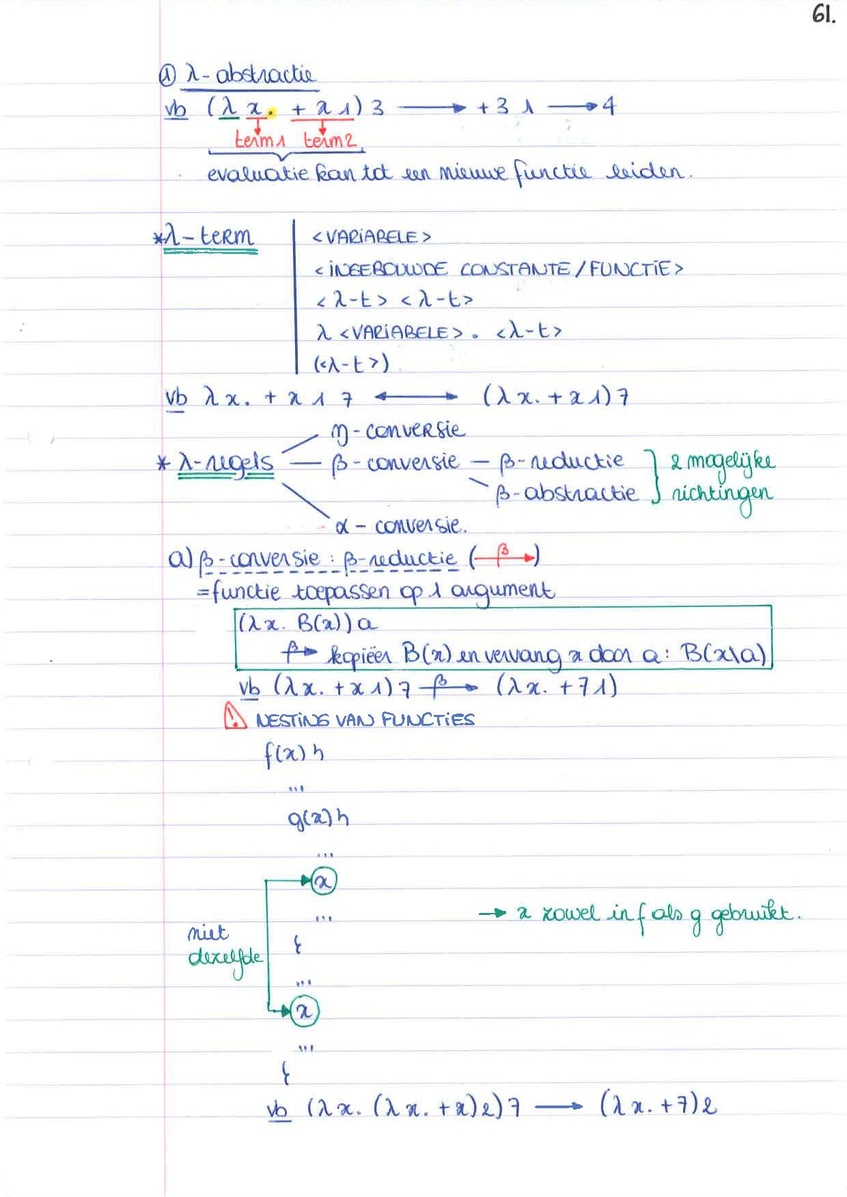 61.
① λ-abstractie
vb (λ x. + x 1) 3 → + 3 1 → 4
term1 term2
evaluatie kan tot een nieuwe functie leiden.
*λ-term
<VARIABELE>
<INGEBOUWDE CONSTANTE/FUNCTIE>
<λ-t> <λ-t>
λ <VARIABELE>. <λ-t>
(<λ-t>)
vb λx. + x 1 7 ↔ (λx. + x 1) 7
η-conversie
* λ-regels — β-conversie — β-reductie } 2 mogelijke
β-abstractie } richtingen
α-conversie.
a) β-conversie: β-reductie (β→)
=functie toepassen op 1 argument
(λx. B(x)) a
β→ kopiëer B(x) en vervang x door a: B(x\a)
vb (λx. + x 1) 7 β→ (λx. + 7 1)
⚠ NESTING VAN FUNCTIES
f(x) h
...
g(x) h
...
x
...
→ x zowel in f als g gebruikt.
niet
dezelfde
}
...
x
...
}
vb (λx. (λx. + x) 2) 7 → (λx. + 7) 2